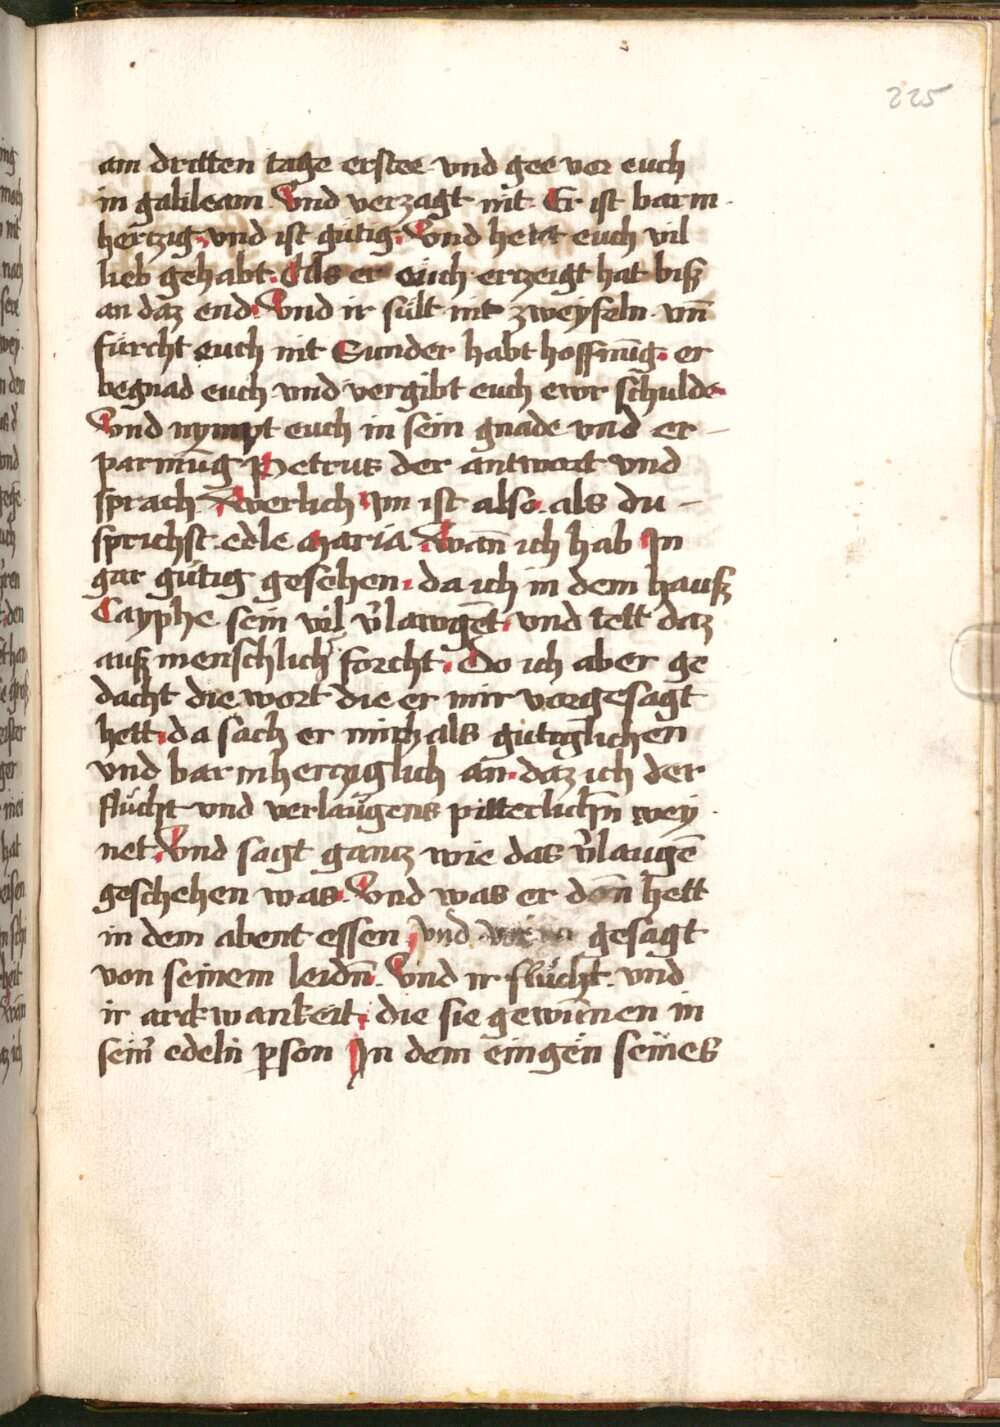 225
am dritten tage erstee vnd gee vor euch
in galileam Vnd verzagt nit. Er ist barm-
hertzig. vnd ist gütig. Vnd hetat euch vil
lieb gehabt. Als er eüch ertzeigt hat biß
an daz end. Vnd ir sült nit zweyfeln. vn̄
fürcht euch nit Sunder habt hoffnūg. er
begnad euch vnd vergibt euch ewr schulde
Vnd nympt euch in sein gnade vnd er-
parmūg Petrus der antwort vnd
sprach. Werlich Im ist also. als du-
sprichst. edle Maria. Wan̄ ich hab In
gar gütig gesehen. da ich in dem hauß
Cayphe sein vil v̄lawgēt. vnd tett daz
auß menschlicher forcht. Do ich aber ge
dacht die wort die er mir vorgesagt
hett. da sach er mich als gutiglichen
vnd barmhertziglich an. daz ich der
flücht vnd verlaügens pitterlichn̄ wey-
net. Vnd sagt gantz wie das v̄laugē
geschehen was. Vnd was er don̄ hett
in dem abent essen. vnd gesagt
von seinem leidn̄. Vnd ir flücht. vnd
ir arckwankeit. die sie gewūnen in
sein̄ edeln ꝑson In dem eingen seines